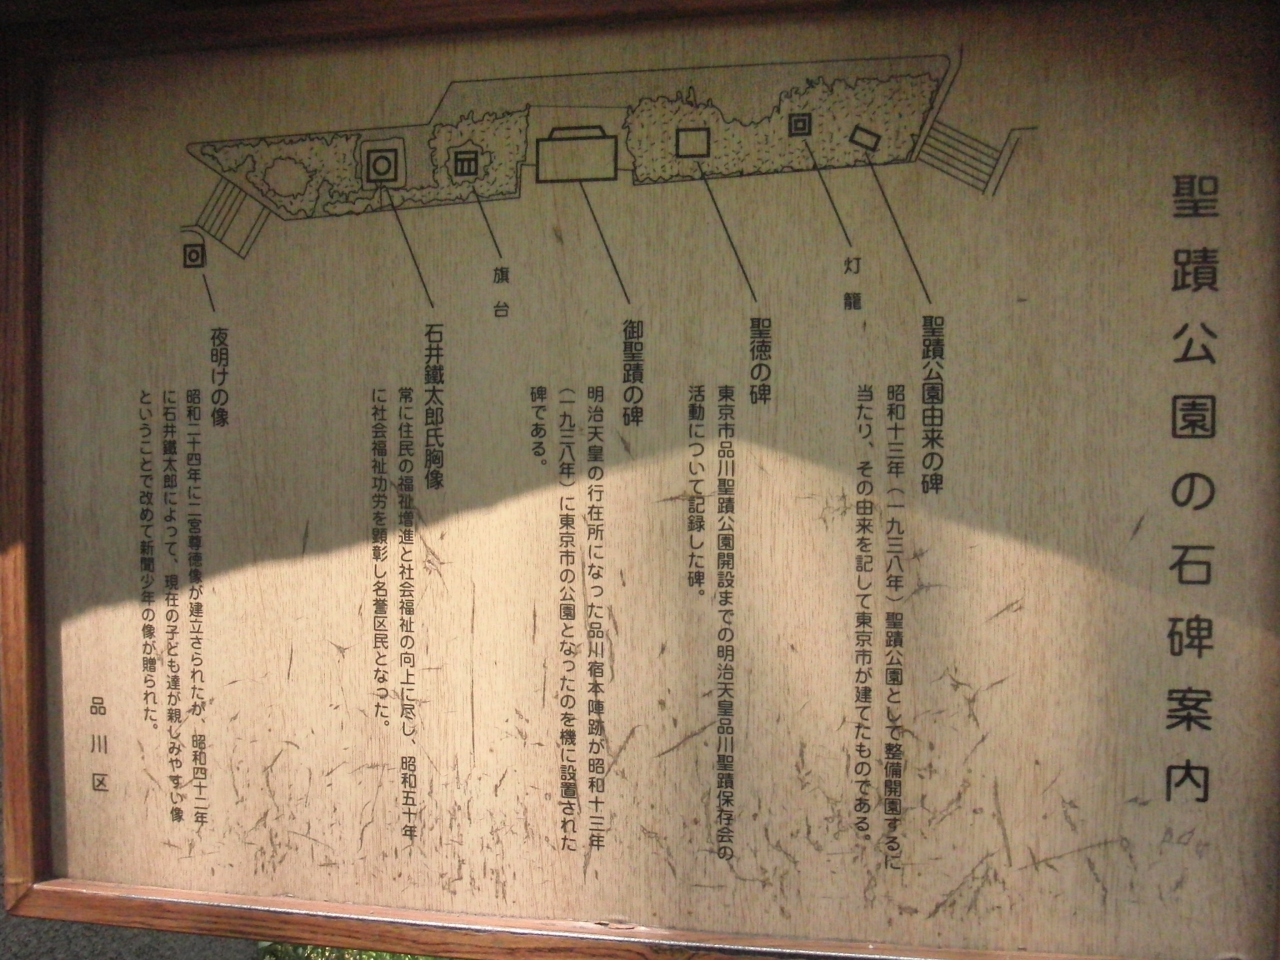 聖蹟公園の石碑案内
聖蹟公園由来の碑
昭和十三年（一九三八年）聖蹟公園として整備開園するに
当たり、その由来を記して東京市が建てたものである。
灯籠
聖徳の碑
東京市品川聖蹟公園開設までの明治天皇品川聖蹟保存会の
活動について記録した碑。
御聖蹟の碑
明治天皇の行在所になった品川宿本陣跡が昭和十三年
（一九三八年）に東京市の公園となったのを機に設置された
碑である。
旗台
石井鐵太郎氏胸像
常に住民の福祉増進と社会福祉の向上に尽し、昭和五十年
に社会福祉功労を顕彰し名誉区民となった。
夜明けの像
昭和二十四年に二宮尊徳像が建立さられたが、昭和四十二年
に石井鐵太郎によって、現在の子ども達が親しみやすい像
ということで改めて新聞少年の像が贈られた。
品川区